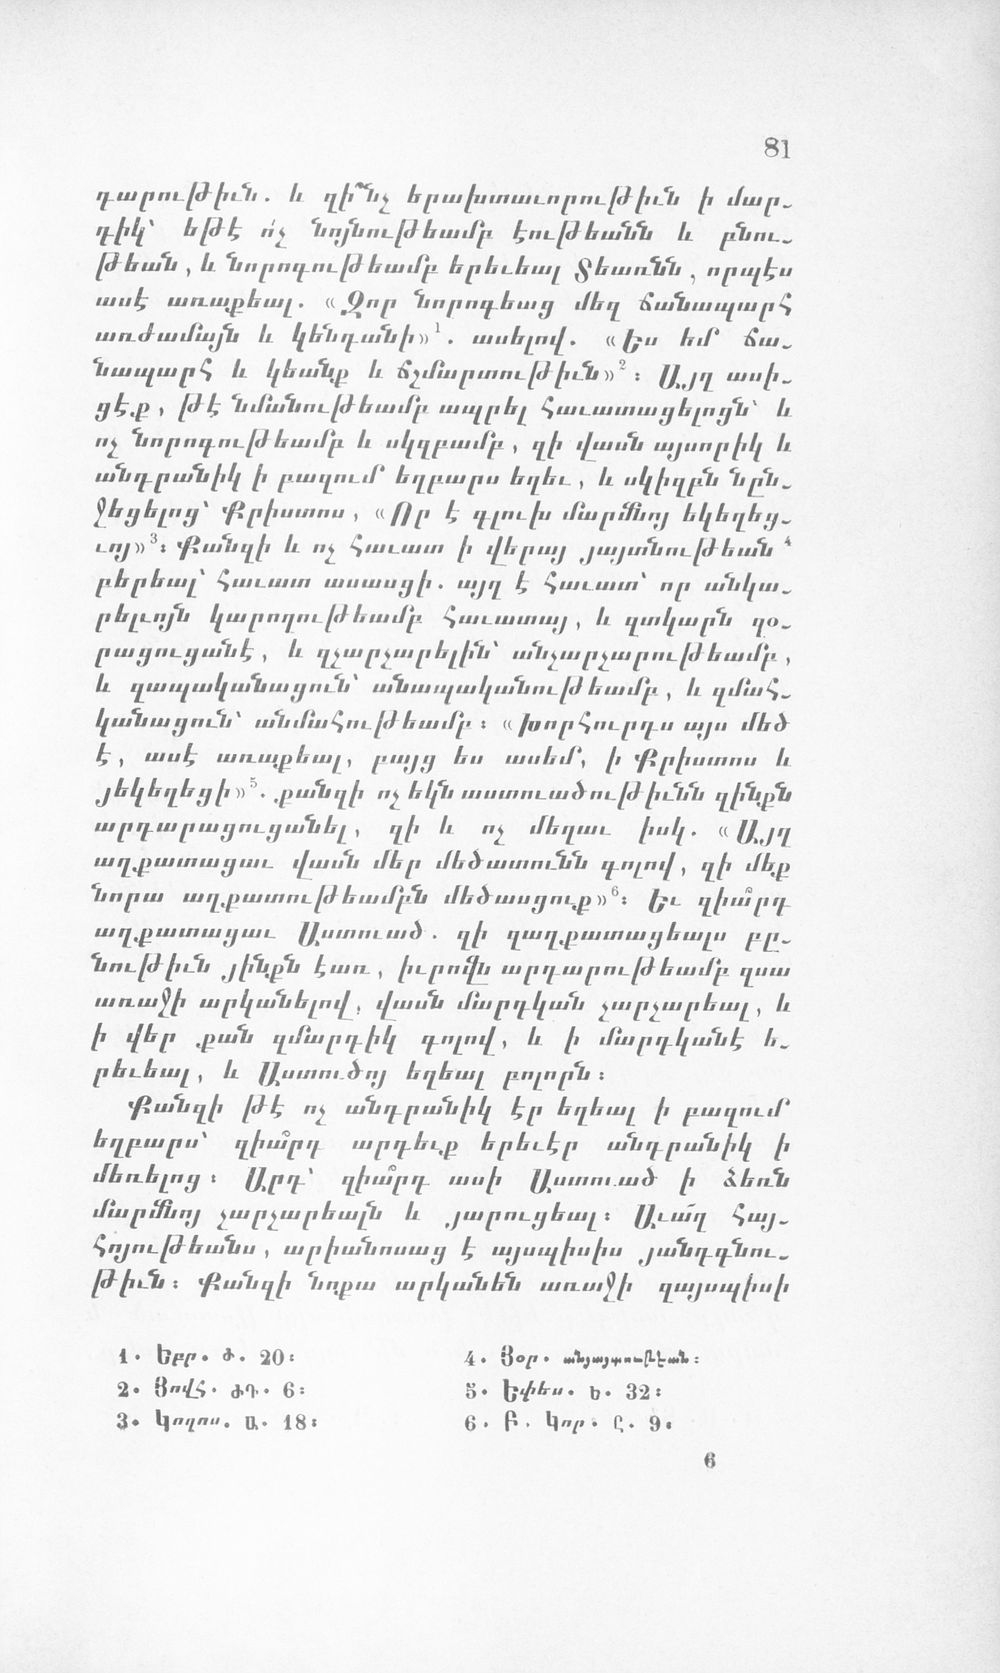 81
դարութիւն. և զի՞նչ երախտաւորութիւն ի մար-
դիկ՝ եթէ ո՛չ նոյնութեամբ էութեանն և բնու-
թեան, և նորոգութեամբ երեւեալ Տեառնն, որպէս
ասէ առաքեալ. «Զոր նորոգեաց մեզ ճանապարհ
առժամայն և կենդանի»¹. ասելով. «Ես եմ ճա-
նապարհ և կեանք և ճշմարտութիւն»²։ Այղ ասի-
ցէք, թէ նմանութեամբ ապրել հաւատացելոցն՝ և
ոչ նորոգութեամբ և սկզբամբ, զի վասն այսորիկ և
անդրանիկ ի բազում եղբարս եղեւ, և սկիզբն նըն-
ջեցելոց՝ Քրիստոս, «Որ է գլուխ մարմնոյ եկեղեց-
ւոյ»³։ Քանզի և ոչ հաւատ ի վերայ յայտնութեան⁴
բերեալ՝ հաւատ ասասցի. այղ է հաւատ՝ որ անկա-
րելւոյն կարողութեամբ հաւատայ, և զտկարն զօ-
րացուցանէ, և զչարչարելին՝ անչարչարութեամբ,
և զապականացուն՝ անապականութեամբ, և զմահ-
կանացուն՝ անմահութեամբ։ «Խորհուրդս այս մեծ
է, ասէ առաքեալ, բայց ես ասեմ, ի Քրիստոս և
յեկեղեցի»⁵. քանզի ոչ եկն աստուածութիւնն զինքն
արդարացուցանել, զի և ոչ մեղաւ իսկ. «Այղ
աղքատացաւ վասն մեր մեծատունն գոլով, զի մեք
նորա աղքատութեամբն մեծասցուք»⁶։ Եւ զիա՞րդ
աղքատացաւ Աստուած. զի զաղքատացեալս բը-
նութիւն յինքն էառ, իւրովն արդարութեամբ զսա
առաջի արկանելով, վասն մարդկան չարչարեալ, և
ի վեր քան զմարդիկ գոլով, և ի մարդկանէ ե-
րեւեալ, և Աստուծոյ եղեալ բոլորն։
Քանզի թէ ոչ անդրանիկ էր եղեալ ի բազում
եղբարս՝ զիա՞րդ արդեւք երեւէր անդրանիկ ի
մեռելոց։ Արդ՝ զիա՞րդ ասի Աստուած ի ձեռն
մարմնոյ չարչարեալն և յարուցեալ։ Աւա՜ղ հայ-
հոյութեանս, արիանոսաց է այսպիսիս յանդգնու-
թիւն։ Քանզի նոքա արկանեն առաջի զայսպիսի
1. Եբր. Ժ. 20։
2. Յովհ. ԺԴ. 6։
3. Կողոս. Ա. 18։
4. Յօր. անյայտութեան։
5. Եփես. Ե. 32։
6. Բ. Կոր. Ը. 9։
6